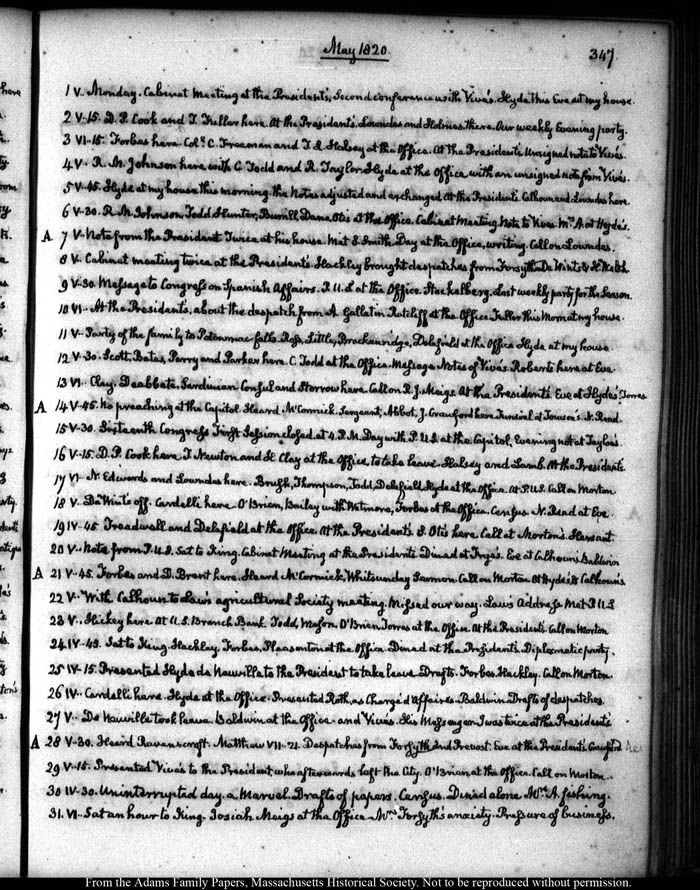 May 1820.
347.
1 V. Monday. Cabinet Meeting at the Presidents, Second conference with Vivés. Hyde this Eve at my house.
2 V.15. D. P. Cook and T. Fuller here. At the Presidents. Lowndes and Holmes there. Our weekly Evening party.
3 VI.15. Forbes here. Col. C. Freeman and Halsey at the Office. At the Presidents. Unsigned note to Vivés.
4 V. R. M. Johnson here with C. Todd and R. Taylor. Hyde at the Office with an unsigned note from Vivés.
5 V.45. Hyde at my house this morning. The Notes adjusted and exchanged. At the Presidents. Calhoun and Lowndes here.
6 V.30. R. M. Johnson, Todd, Hunter, Burrill, Dana, Otis at the Office. Cabinet Meeting. Note to Vives. Mrs A. at Hyde's.
A 7 V. Note from the President. Twice at his house. Met S. Smith. Day at the Office, writing. Call on Lowndes.
8 V. Cabinet meeting twice at the Presidents. Hackley brought despatches from Forsyth. De Wint &
9 V.30. Message to Congress on Spanish Affairs. P.U.S. at the Office. Stackelberg. Last weekly party for the Season.
10 VI. At the Presidents, about the despatch from A. Gallatin. Ratcliff at the Office. Fuller this Morn at my house.
11 V. Party of the family to Potowmac falls. Ross, Little, Brackenridge, Delafield at the Office. Hyde at my house.
12 V.30. Scott, Bates, Perry and Parker here. C. Todd at the Office. Message Notes of Vivés. Roberts here at Eve.
13 VI. Clay. Deabbate. Sardinian Consul and Storrow here. Call on R. J. Meigs. At the Presidents. Eve at Hyde's. Torres
A 14 V.45. No preaching at the Capitol. Heard McCormick. Sergeant, Abbot, J. Crawford here. Funeral at Towson's. N. Read.
15 V.30. Sixteenth Congress First Session closed at 4. P.M. Day with P.U.S. at the Capitol, Evening not at Taylor's.
16 V.15. D. P. Cook here. T. Newton and H. Clay at the Office, to take leave. Halsey and Lamb. At the Presidents
17 VI. N. Edwards and Lowndes here. Brush, Thompson, Todd, Delafield, Hyde at the Office. At P.U.S. Call on Morton
18 V. De Wint's off. Cardelli here. O'Brien, Bailey with Wetmore, Forbes at the Office. Census. N. Read at Eve.
19 IV.45. Treadwell and Delafield at the Office. At the Presidents. S. Otis here. Call at Morton's.
20 V. Note from P.U.S. Sat to King. Cabinet Meeting at the Presidents. Dined at Frye's. Eve at Calhoun's. Baldwin
A 21 V.45. Forbes and D. Brent here. Heard McCormick; Whitsunday Sermon. Call on Morton. At Hyde's & Calhoun's
22 V. With Calhoun to Law's agricultural Society meeting. Missed our way. Law's Address. Met P.U.S
23 V. Hickey here. At U.S. Branch Bank. Todd, Mason, O'Brien, Torres at the Office. At the Presidents. Call on Morton
24 IV.45. Sat to King. Hackley, Forbes, Pleasonton at the Office. Dined at the President's. Diplomatic party.
25 IV.15. Presented Hyde de Neuville to the President to take leave. Drafts. Forbes. Hackley. Call on Morton.
26 IV. Cardelli here. Hyde at the Office. Presented Roth, as Chargé d'Affaires. Baldwin. Drafts of despatches.
27 V. De Neuville took leave. Baldwin at the Office. and Vivés. His Messenger. I was twice at the Presidents
A 28 V.30. Heard Ravenscroft. Matthew VII.21. Despatches from Forsyth and Prevost. Eve at the Presidents. Crawford
29 V.15. Presented Vivés to the President, who afterwards left the City. O'Brien at the Office. Call on Morton.
30 IV.30. Uninterrupted day. a Marvel. Drafts of papers. Census. Dined alone. Mrs A. fishing.
31. VI. Sat an hour to King. Josiah Meigs at the Office. Mrs Forsyth's anxiety. Pressure of business.
From the Adams Family Papers, Massachusetts Historical Society. Not to be reproduced without permission.